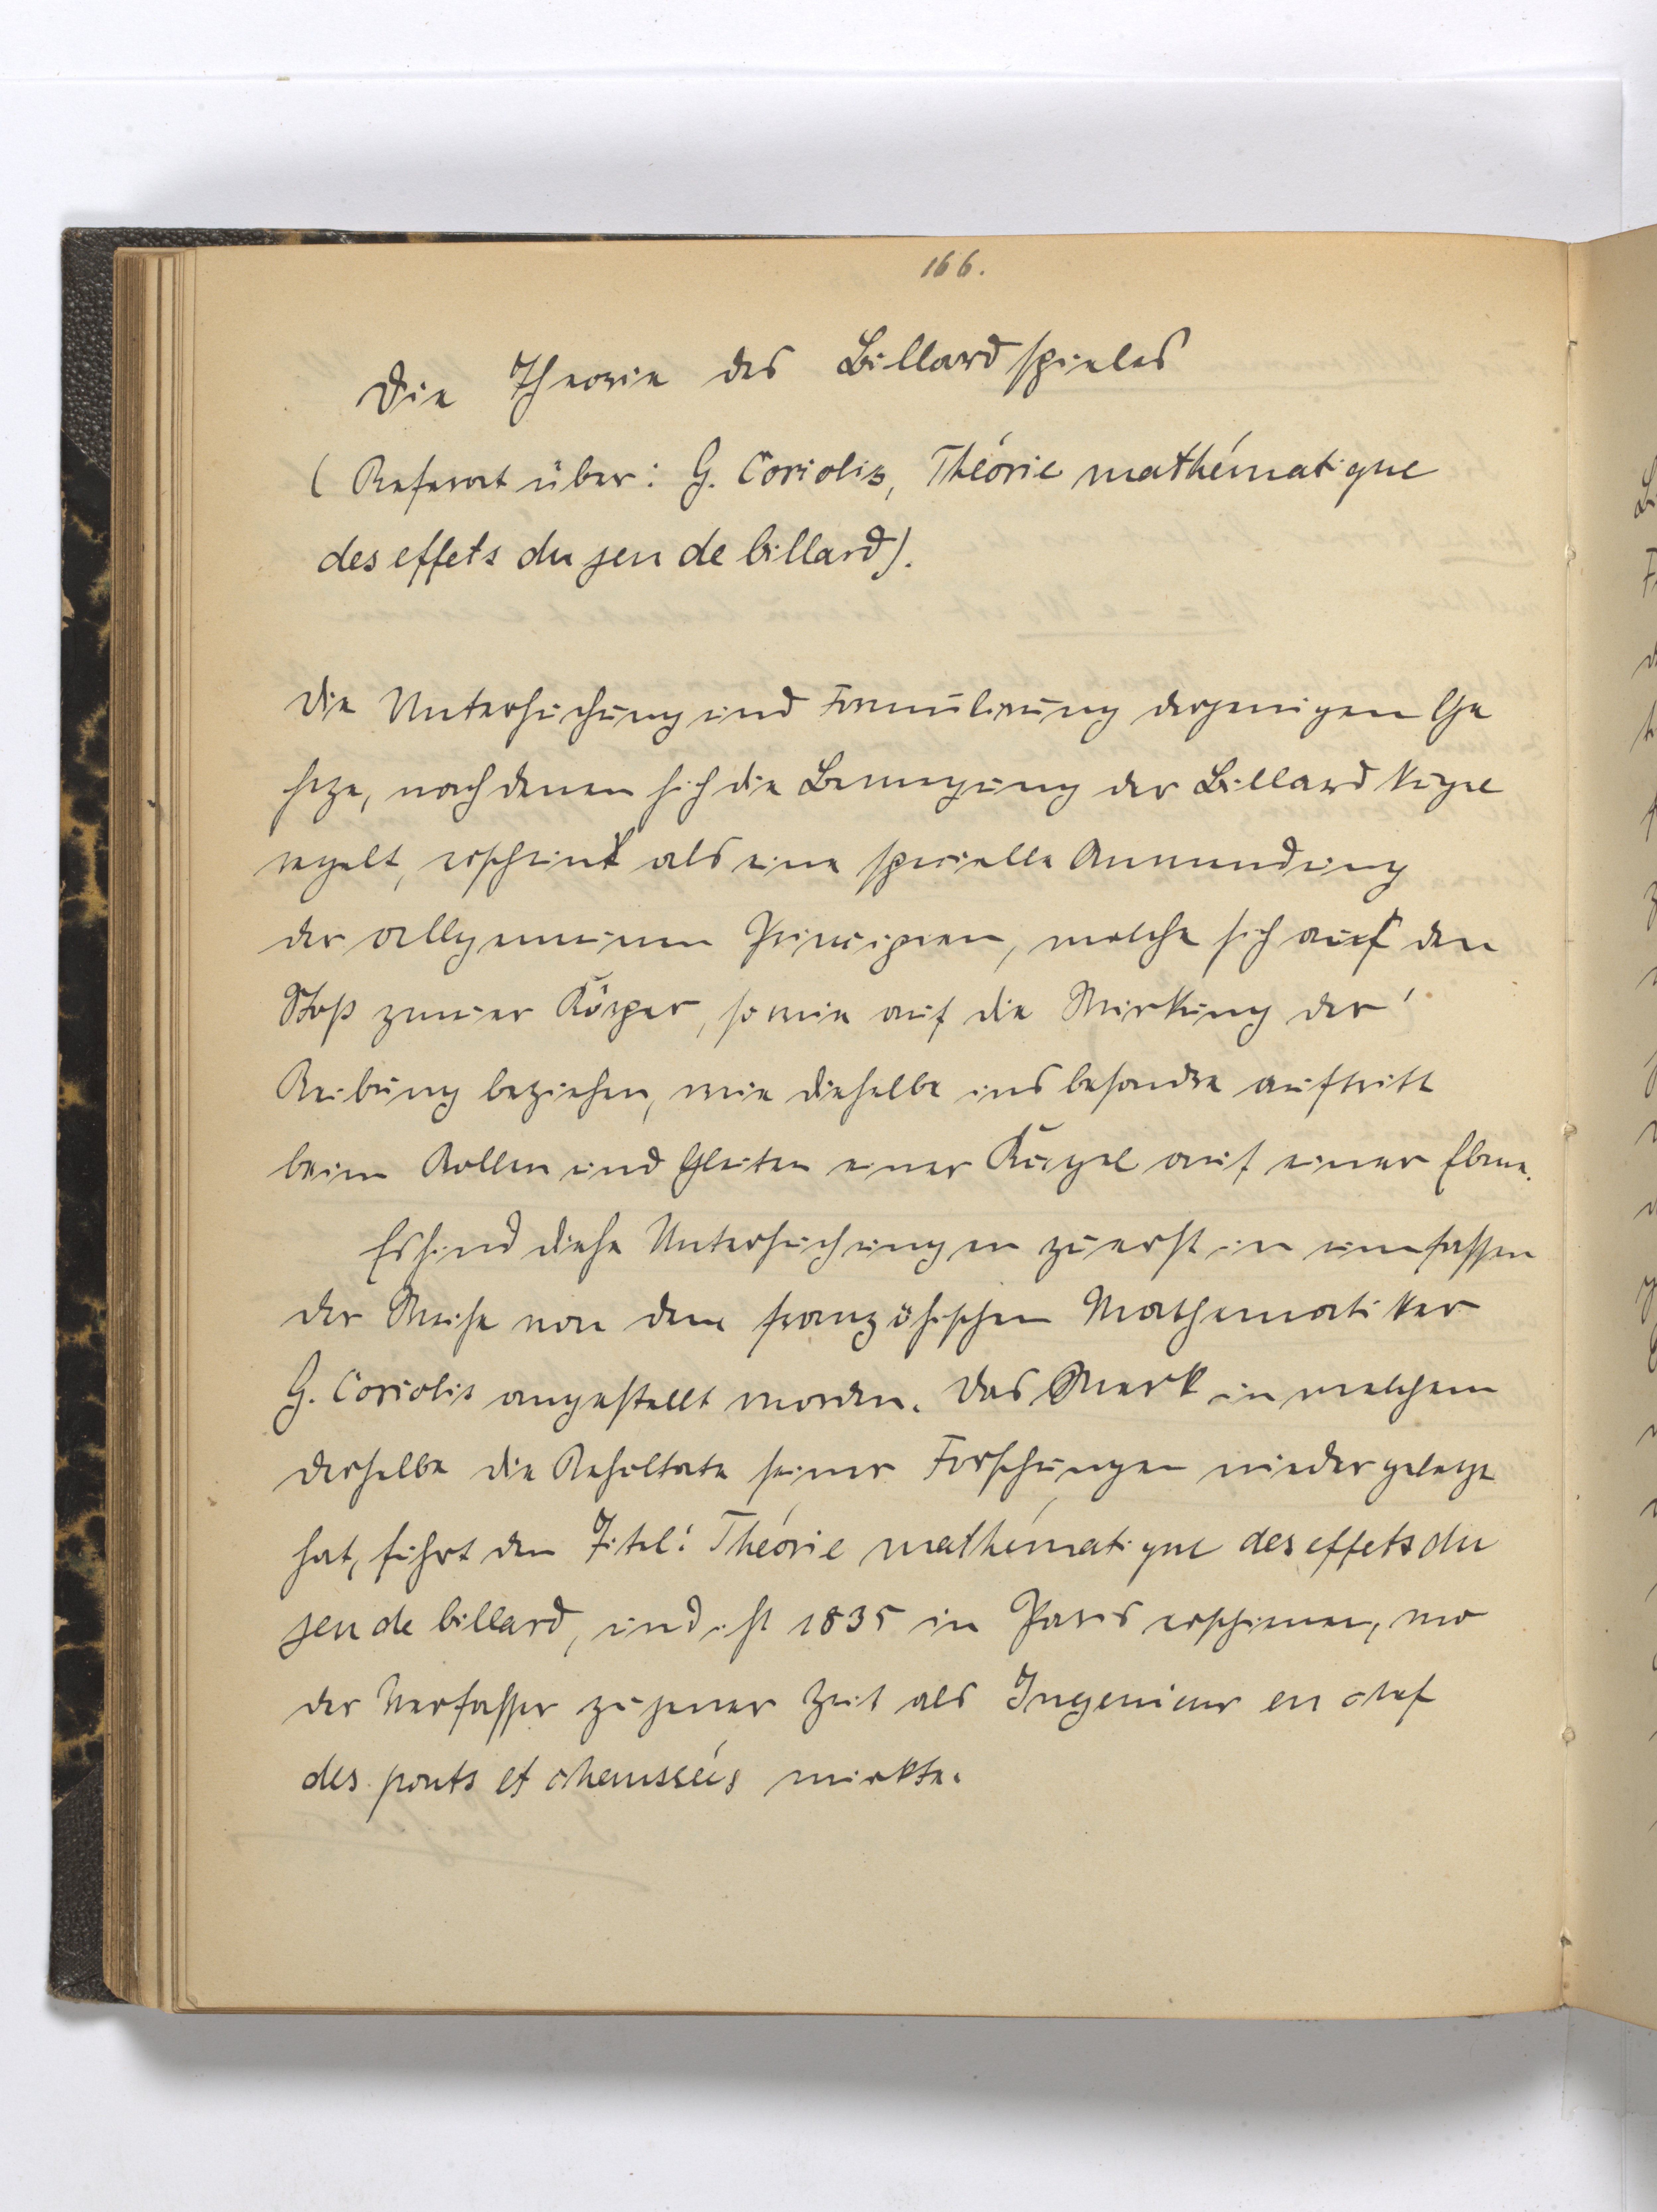 166.
Die Theorie des Billardspieles
( Referat über: G. Coriolis, Théorie mathématique
des effets du jeu de billard).
Die Untersuchung und Formulirung derjenigen Ge
setze, nach denen sich die Bewegung der Billardkugel
regelt, erscheint als eine specielle Anwendung
der allgemeinen Principien, welche sich auf den
Stoß zweier Körper, sowie auf die Wirkung der
Reibung beziehen, wie dieselbe insbesondre auftritt
beim Rollen und Gleiten einer Kugel auf einer Ebene.
Es sind diese Untersuchungen zuerst in umfassen
der Weise von dem französischen Mathematiker
G. Coriolis angestellt worden. Das Werk in welchem
derselbe die Resultate seiner Forschungen niedergelegt
hat, führt den Titel: Théorie mathématique des effets du
jeu de billard, und ist 1835 in Paris erschienen, wo
der Verfasser zu jener Zeit als Ingenieur en chef
des ponts et chaussées wirkte.